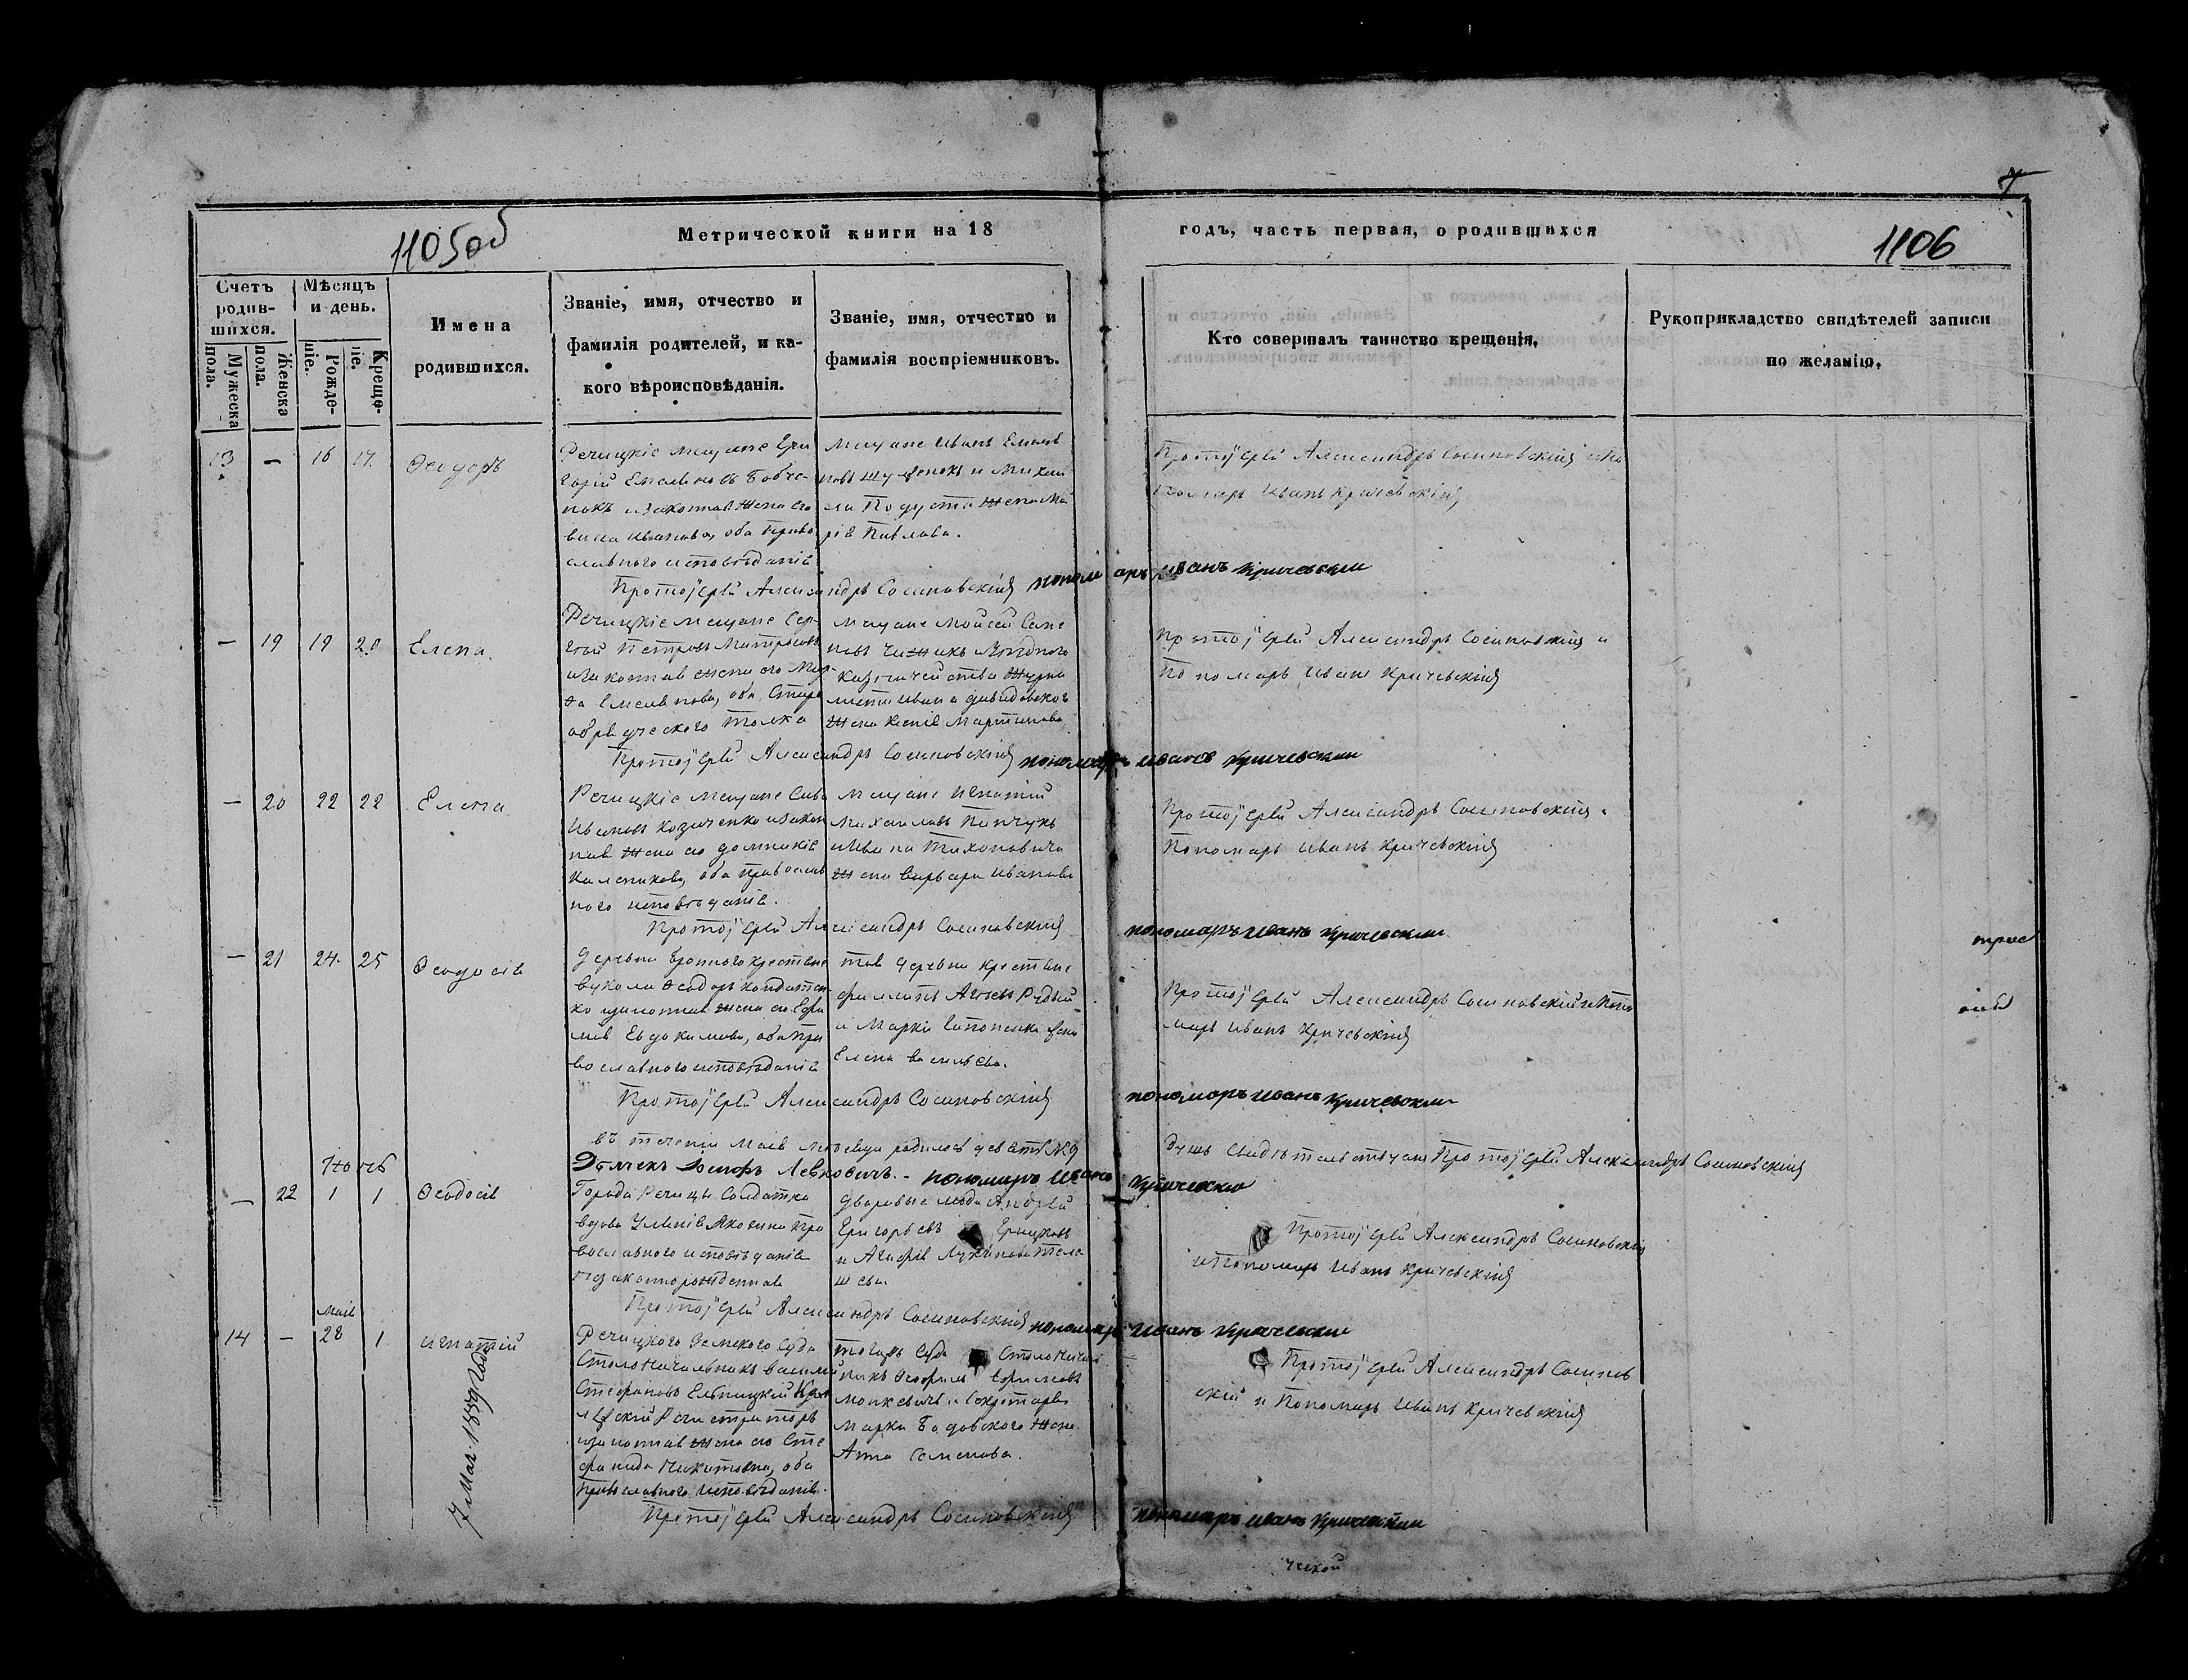 7
1105 об
Метрической книги на 18
годъ, часть первая, о родившихся
1106
Счетъ родив-шихся.
Мѣсяцъ и день.
Имена родившихся.
Званіе, имя, отчество и
фамилія родителей, и ка-
кого вѣроисповѣданія.
Званіе, имя, отчество и
фамилія воспріемниковъ.
Кто совершалъ таинство крещенія,
Рукоприкладство свидѣтелей записи
по желанію,
Мужеска пола.
Женска пола.
Рожде-ніе.
Креще-ніе.
13 — 16 17. Ѳеодоръ
Речицкіе мещане Гри
горій Емельяновъ Бобче-
нокъ и законная жена его
Иванова, оба Право
славного исповѣданія
мещане Иванъ Емелья
новъ и Михаи
ла жена Ма
рія Павлова.
Протоіерей Александръ Сосиновскій и По
номарь Иванъ Кричевскій
Протоіерей Александръ Сосиновскій пономарь Иванъ Кричевскій
— 19 19 20 Елена.
Речицкіе мещане Сер-
гѣй Петровъ
и законная жена его Мар-
ѳа Емельянова, оба Старо
обрядческого толка
мещане Моисей Семе
новъ Чижикъ
казначейства Журна
листа Ивана Давидовского
жена Ксенія Мартинова
Протоіерей Александръ Сосиновскій и
Пономарь Иванъ Кричевскій
Протоіерей Александръ Сосиновскій пономарь Иванъ Кричевскій
— 20 22 22 Елена
Речицкіе мещане Сава
Ивановъ Козиченко и закон
ная жена его Домникія
оба православ
ного исповѣданія.
мещане Игнатій
Михаиловъ Пинчукъ
и Ивана Тихоновича
жена Варвара Иванова
Протоіерей Александръ Сосиновскій и
Пономарь Иванъ Кричевскій
Протоіерей Александръ Сосиновскій
пономарь Иванъ Кричевскій
— 21 24. 25 Ѳеодосія
Деревни крестьяне
Ѳеодоръ
ко и законная жена его Ефи
мія Евдокимова, оба Пра
вославного исповѣданія
той деревни крестьяне
Филиппъ Рудый
и Марки жена
Елена Васильева.
Протоіерей Александръ Сосиновскій и Поно
марь Иванъ Кричевскій
Протоіерей Александръ Сосиновскій
пономарь Иванъ Кричевскій
въ теченіи Маія мѣсяца родилось девять № 9
душъ свидѣтельствуемъ Протоіерей Александръ Сосиновскій
Дьячекъ Іосифъ Левковичъ. пономарь Иванъ Кричевскій
Іюнь
— 22 1 1 Ѳеодосія
Города Речицы Солдатка
вдова Уліянія Яковина Пра
вославного исповѣданія
незаконнорожденная
дворовые люди Андрей
Григорьевъ Грицковъ
и Агафія Лукьянова
шева.
Протоіерей Александръ Сосиновскій
и Пономарь Иванъ Кричевскій
Протоіерей Александръ Сосиновскій пономарь Иванъ Кричевскій
Маія
14 — 28 1 Игнатій
7 Мая 1889 года
Речицкого Земского Суда
Столоначальникъ Василій
Стефановъ Ельницкій Кол
лѣжскій Регистраторъ
и законная жена его Сте
фанида Никитова, оба
Православного исповѣданія.
тогожъ Суда Столоначаль
никъ Ѳеофилъ Ефимовъ
Монкевичъ и Секретаря
Марка Бадовского жена
Анна Семенова.
Протоіерей Александръ Сосинов
скій и Пономарь Иванъ Кричевскій
Протоіерей Александръ Сосиновскій
пономарь Иванъ Кричевскій